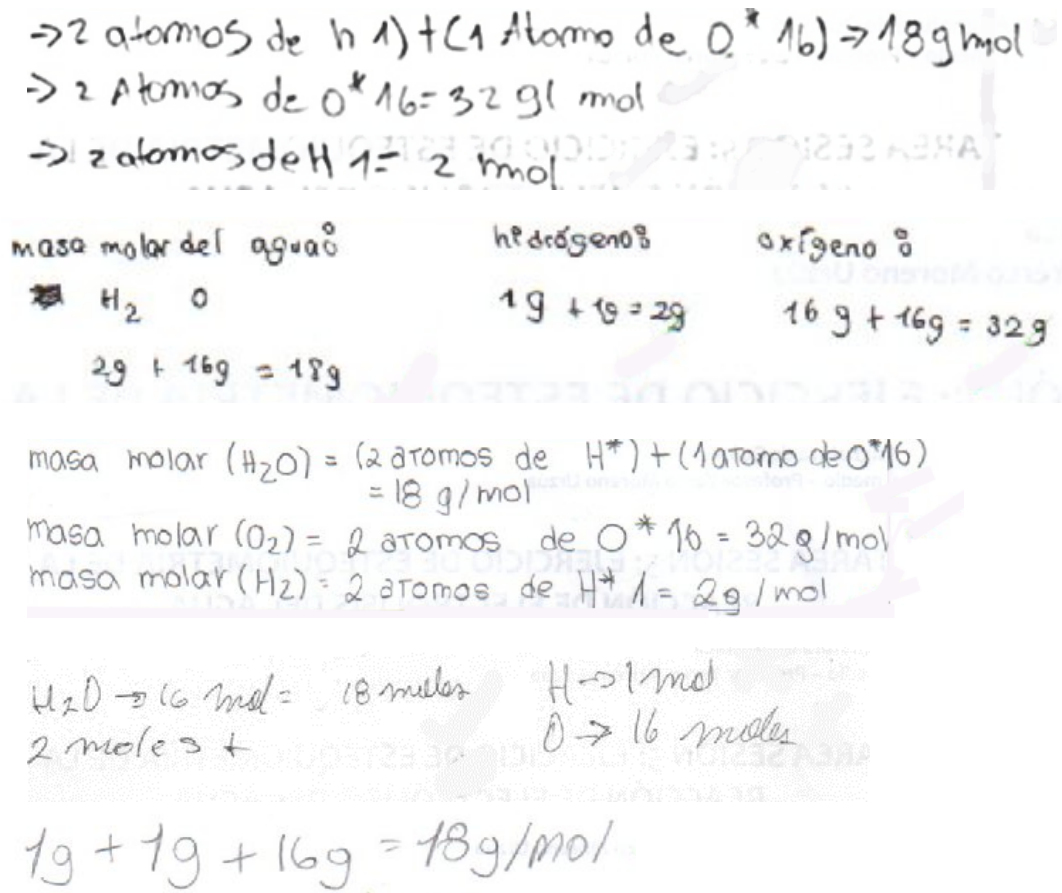 →2 atomos de h 1)+(1 Atomo de O * 16)→18g mol
→ 2 Atomos de O* 16=32 g( mol
→ 2 atomos de H 1= 2 mol
masa molar del agua: hidrógeno: oxígeno:
H₂ O 1g + 1g = 2g 16 g + 16g = 32g
2g + 16g = 18g
masa molar (H₂O) = (2 atomos de H*) + (1 atomo de O*16)
= 18 g/mol
masa molar (O₂) = 2 atomos de O * 16 = 32 g/mol
masa molar (H₂) = 2 atomos de H* 1 = 2g/mol
H₂O → 16 mol = 18 moles H→1 mol
2 moles + O→ 16 moles
1g + 1g + 16g = 18g/mol